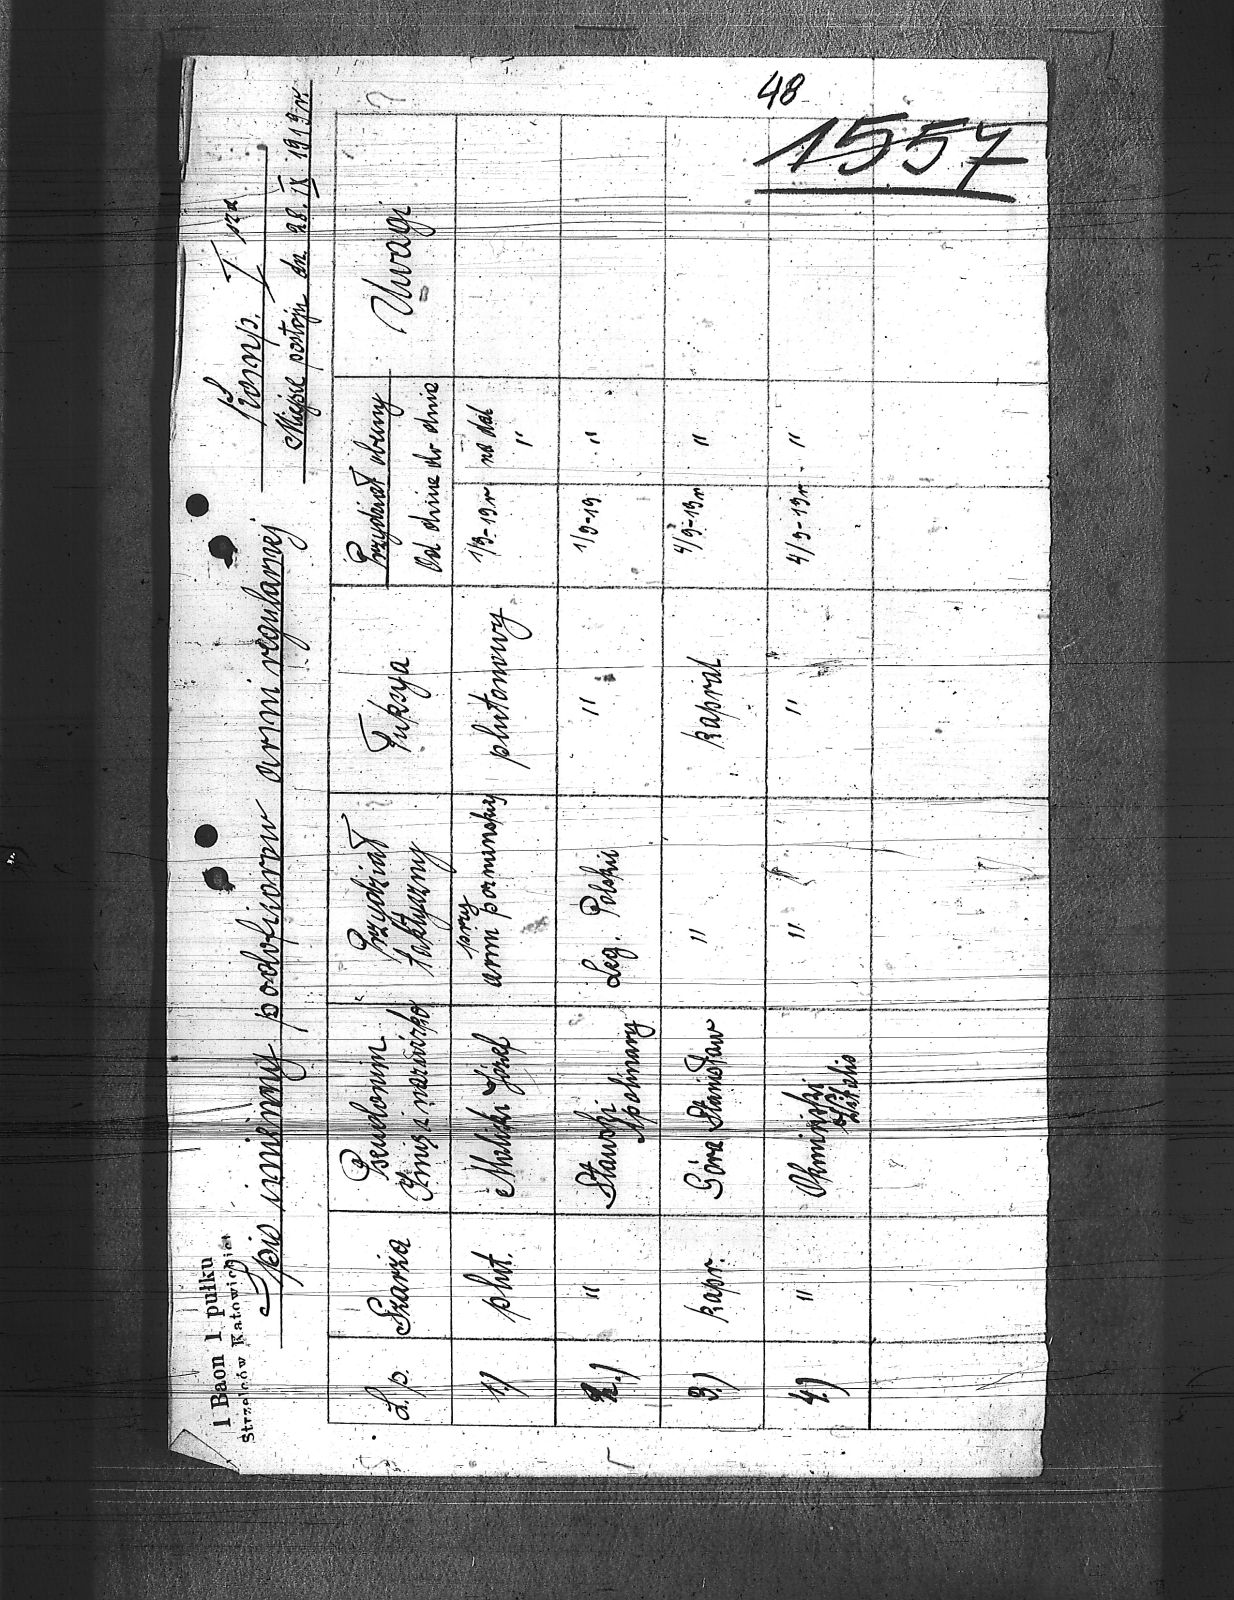 48
1557
1 Baon 1 pułku
Strzelców Katowickich
Komp. I sza
Miejsce postoju dn 28. IX 1919 r.
Spis imienny podoficerów armi regularnej
L. p. Szarża Pseudonim Przydział Funkcya Przydział Uwagi
Imię i nazwisko taktyczny Od dnia do dnia
1.) plut. Malicki Józef przy armi poznanskiej plutonowy 1/9-19 r na dal
"
2.) " Stawski Apolinary Leg. Polskie " 1/9-19 "
3.) kapr. Góra Stanisław " kapral 4/9-19 r "
4.) " " " 4/9-19 r - "